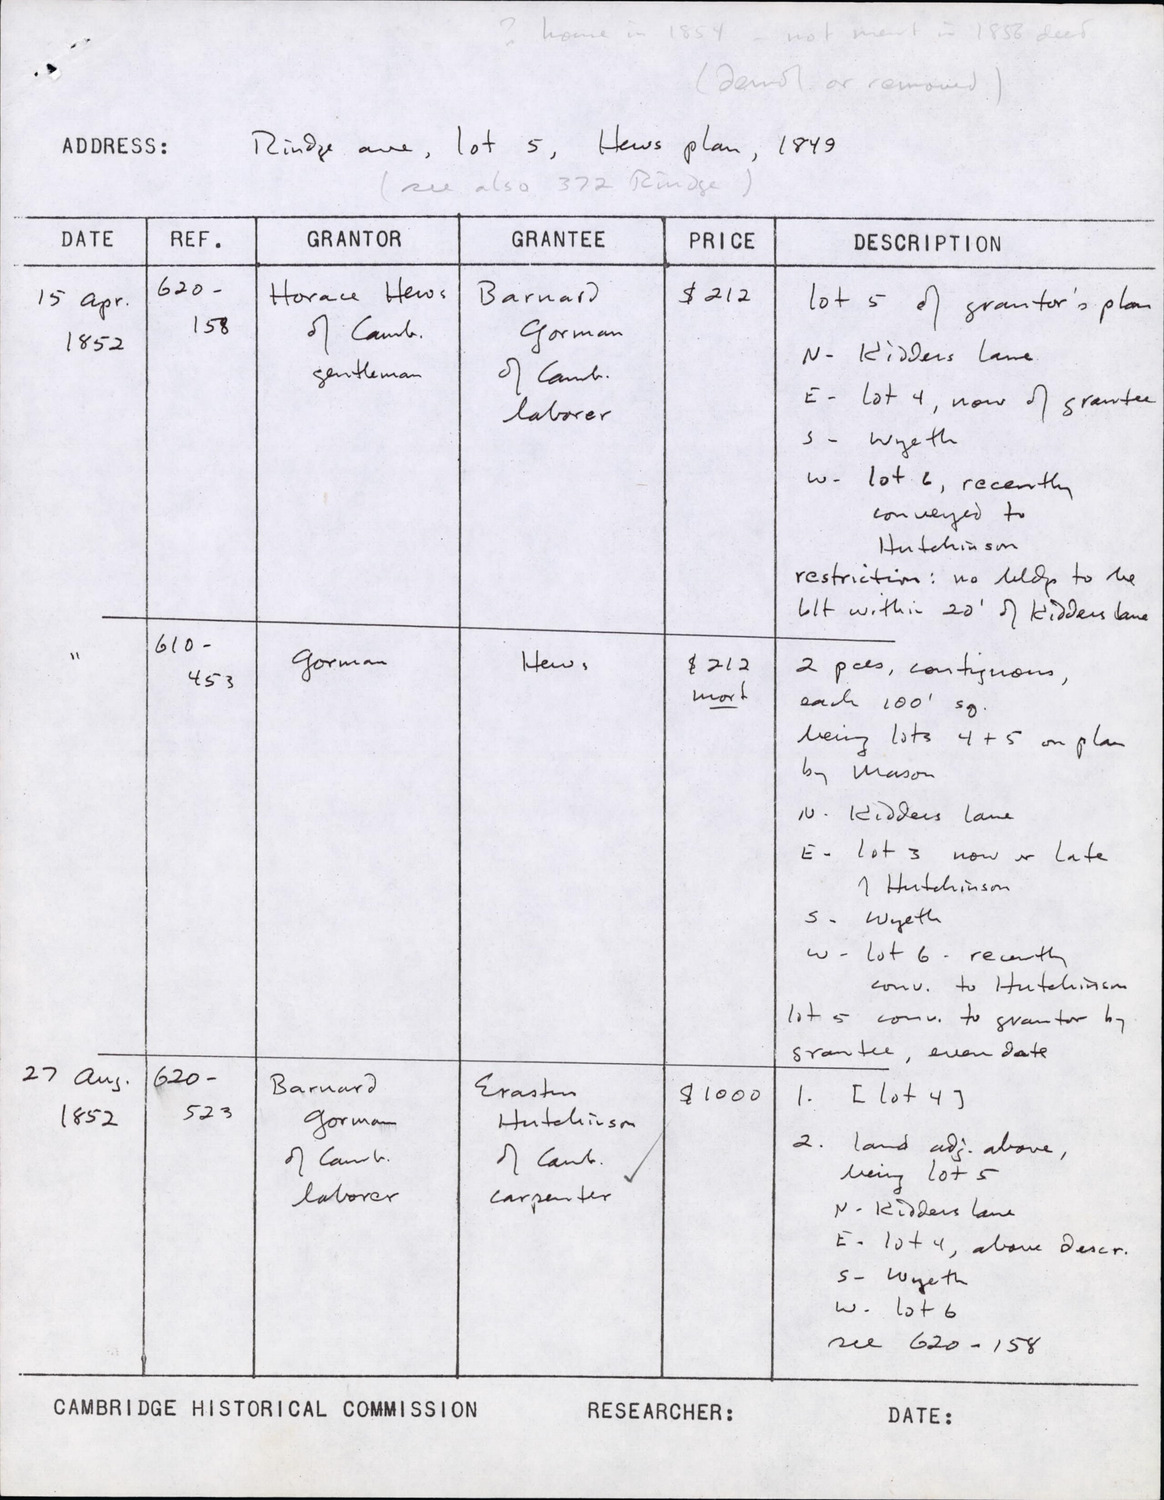 ? house in 1854 - not ment in 1856 deed
(demol. or removed)
ADDRESS: Rindge ave, lot 5, Hews plan, 1849
(see also 372 Rindge)
DATE REF. GRANTOR GRANTEE PRICE DESCRIPTION
15 Apr. 1852
620-158
Horace Hews
of Camb.
gentleman
Barnard
Gorman
of Camb.
laborer
$212
lot 5 of grantor's plan
N- Kidders Lane
E- lot 4, now of grantee
S- Wyeth
W- lot 6, recently
conveyed to
Hutchinson
restriction: no bldgs to be
blt within 20' of Kidders lane
"
610-
453
Gorman
Hews
$212
mort
2 pces, contiguous,
each 100' sq.
being lots 4+5 on plan
by Mason
N. Kidders lane
E- lot 3 now or late
of Hutchinson
S- Wyeth
W- lot 6 - recently
conv. to Hutchinson
lot 5 conv. to grantor by
grantee, even date
27 Aug.
1852
620-
523
Barnard
Gorman
of Camb.
laborer
Erastus
Hutchinson
of Camb.
carpenter ✓
$1000
1. [lot 4]
2. land adj. above,
being lot 5
N- Kidders lane
E- lot 4, above descr.
S- Wyeth
W. lot 6
see 620-158
CAMBRIDGE HISTORICAL COMMISSION RESEARCHER: DATE: